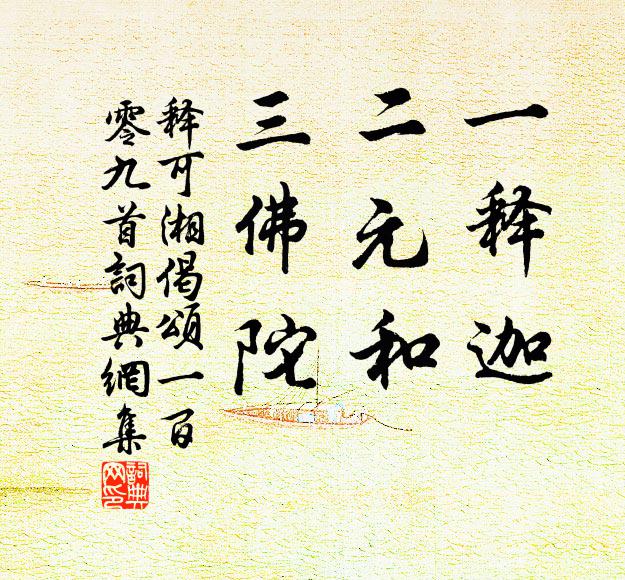 一释迦
二元和
三佛陀
释可湘偈颂一百
零九首詞典網集
詞典
网印